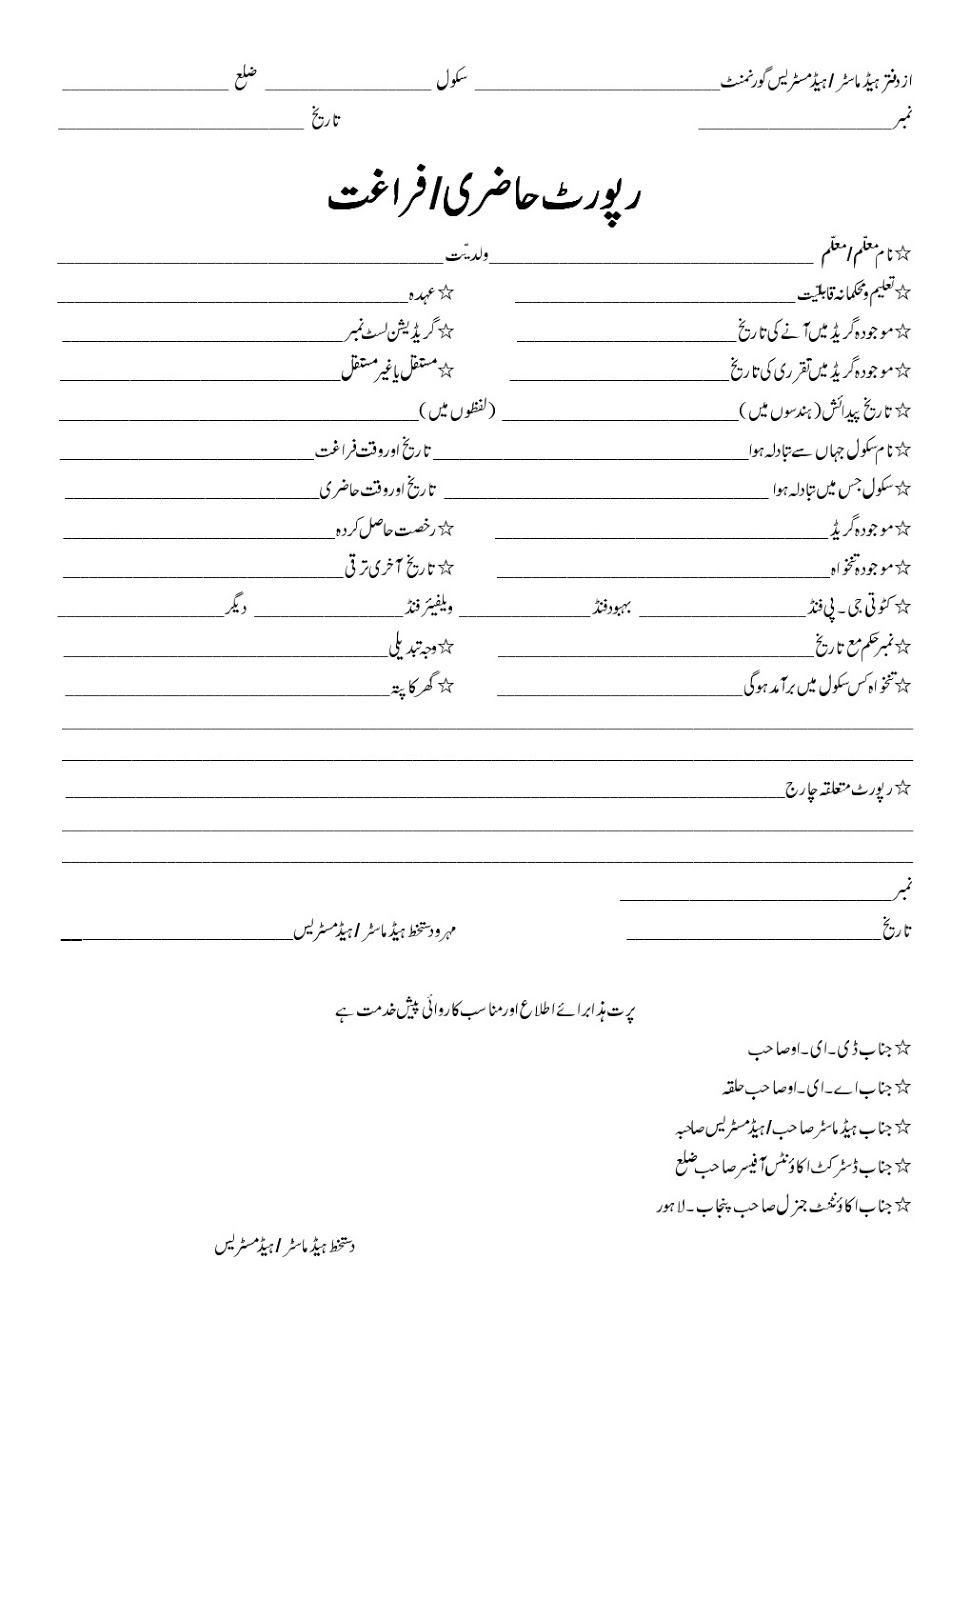 از دفتر ہیڈ ماسٹر / ہیڈ مسٹریس گورنمنٹ____________________ سکول ______________ ضلع ______________
نمبر________________ تاریخ ____________________
رپورٹ حاضری/فراغت
☆ نام معلّم/معلّم ____________________ولدیّت____________________
☆ تعلیم و محکمانہ قابلیّت____________________ ☆ عہدہ____________________
☆ موجودہ گریڈ میں آنے کی تاریخ____________________ ☆ گریڈیشن لسٹ نمبر____________________
☆ موجودہ گریڈ میں تقرری کی تاریخ____________________ ☆ مستقل یا غیر مستقل____________________
☆ تاریخ پیدائش (ہندسوں میں)____________________ (لفظوں میں)____________________
☆ نام سکول جہاں سے تبادلہ ہوا____________________ تاریخ اور وقت فراغت____________________
☆ سکول جس میں تبادلہ ہوا ____________________ تاریخ اور وقت حاضری____________________
☆ موجودہ گریڈ____________________ ☆ رخصت حاصل کردہ____________________
☆ موجودہ تنخواہ____________________ ☆ تاریخ آخری ترقی____________________
☆ کٹوتی جی ۔ پی فنڈ______________ بہبود فنڈ____________ ویلفیئر فنڈ____________ دیگر______________
☆ نمبر حکم مع تاریخ____________________ ☆ وجہ تبدیلی____________________
☆ تنخواہ کس سکول میں برآمد ہوگی____________________ ☆ گھر کا پتہ____________________
________________________________________
________________________________________
☆ رپورٹ متعلقہ چارج____________________
________________________________________
________________________________________
نمبر____________________
تاریخ____________________ مہر و دستخط ہیڈ ماسٹر / ہیڈ مسٹریس____________________
پرت ہذا برائے اطلاع اور مناسب کاروائی پیش خدمت ہے
☆ جناب ڈی۔ای۔او صاحب
☆ جناب اے۔ای۔او صاحب حلقہ
☆ جناب ہیڈ ماسٹر صاحب/ہیڈ مسٹریس صاحبہ
☆ جناب ڈسٹرکٹ اکاؤنٹس آفیسر صاحب ضلع
☆ جناب اکاؤنٹنٹ جنرل صاحب پنجاب۔لاہور
دستخط ہیڈ ماسٹر / ہیڈ مسٹریس